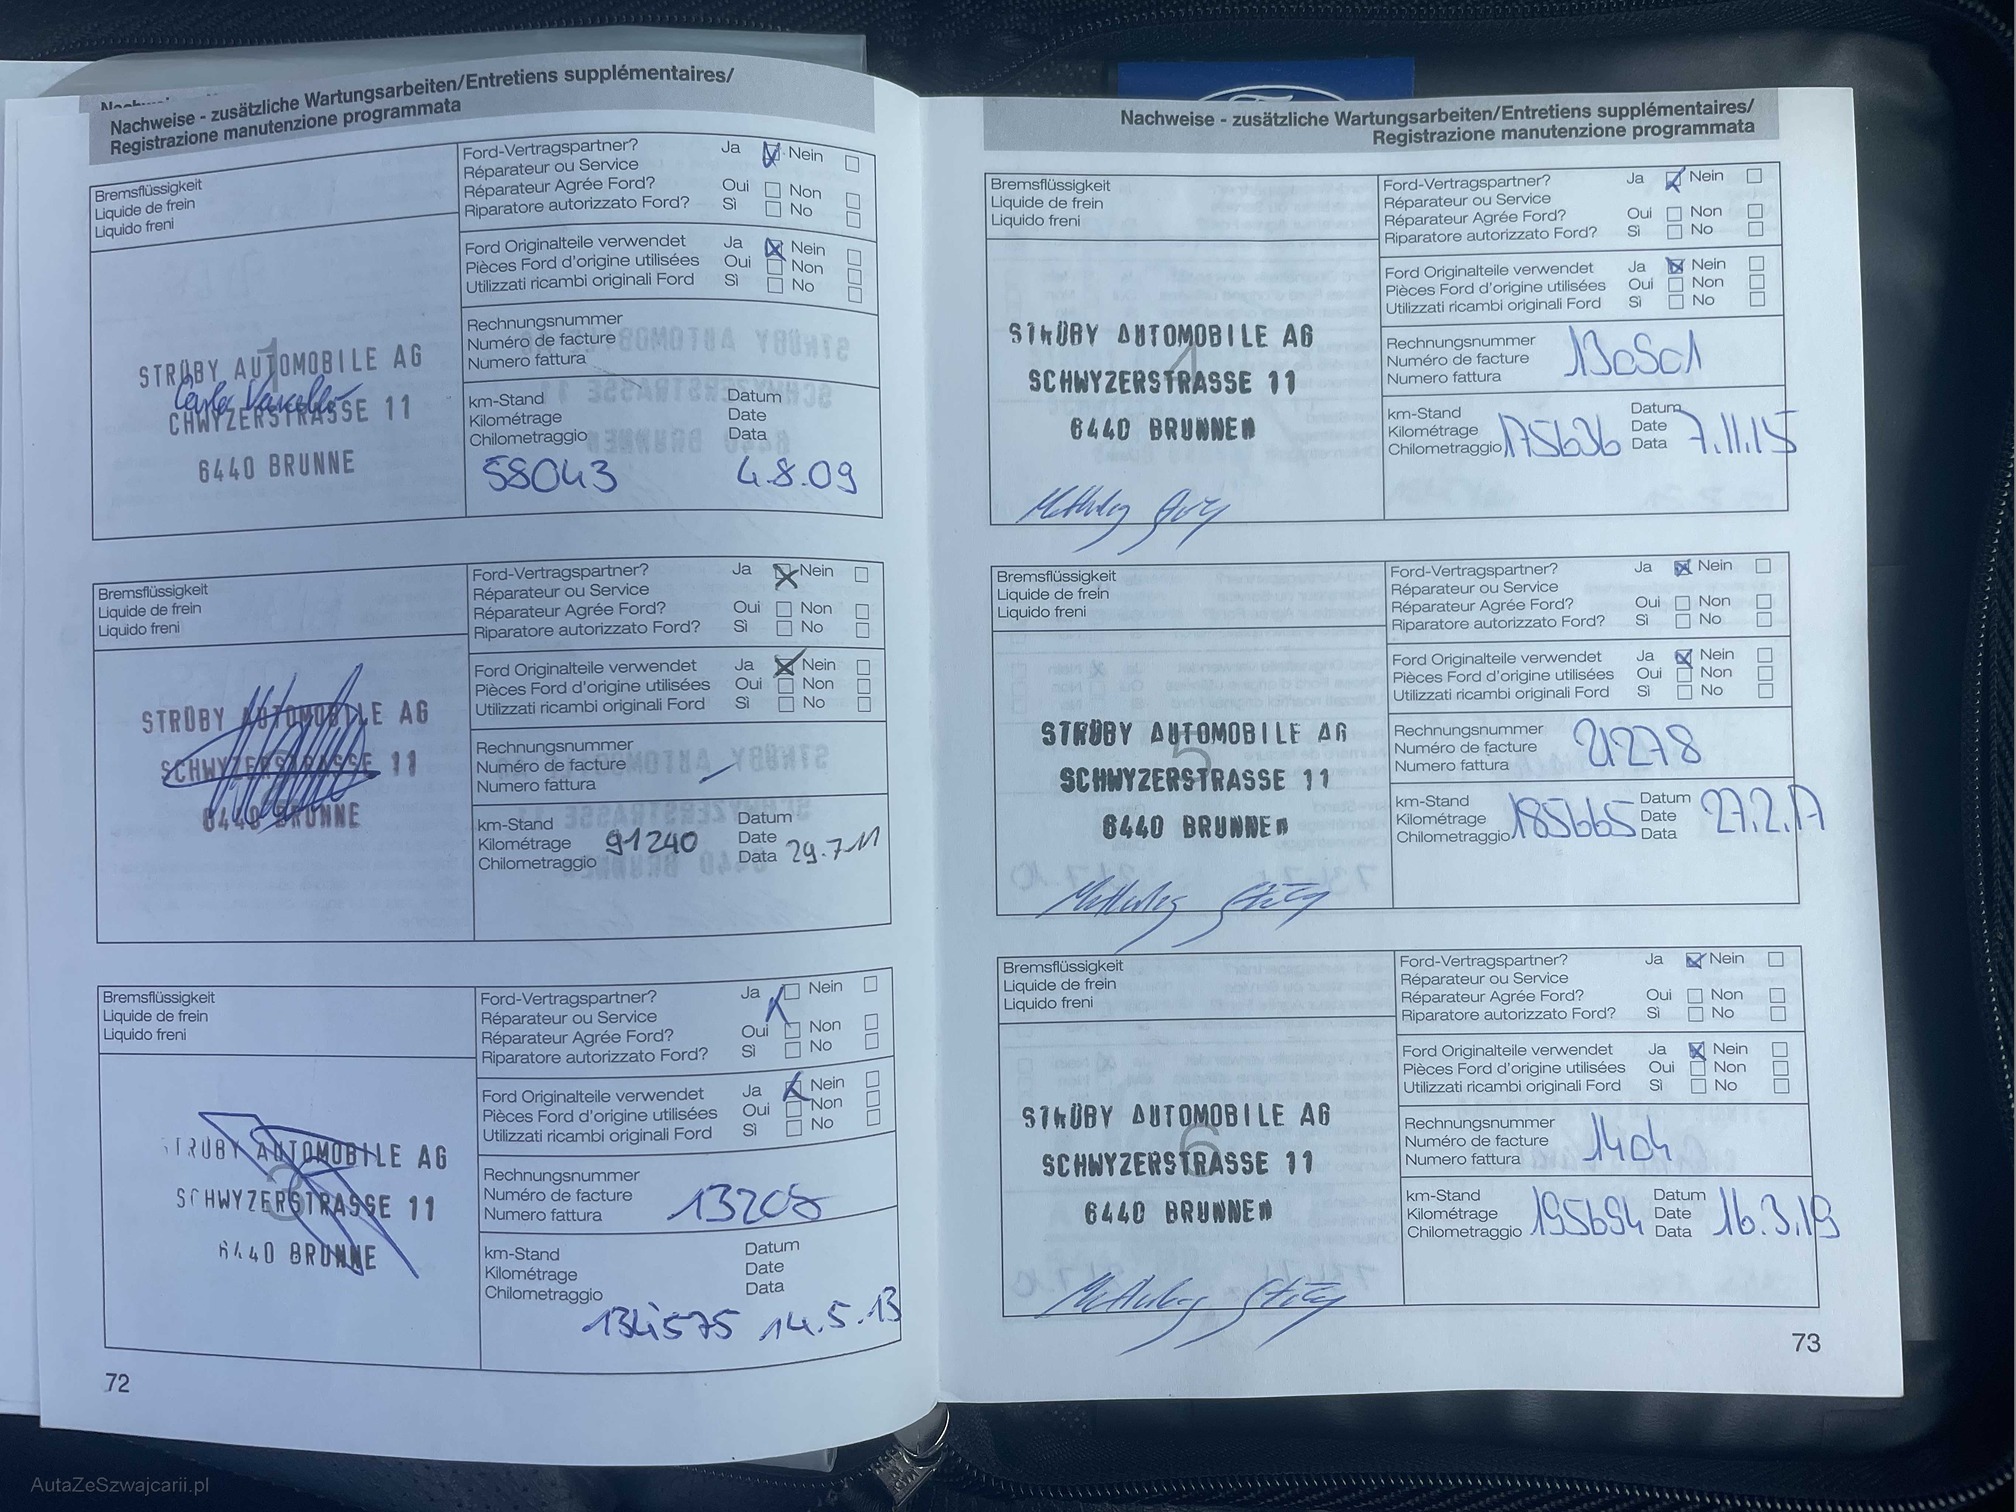 Nachweise - zusätzliche Wartungsarbeiten/Entretiens supplémentaires/
Registrazione manutenzione programmata
Bremsflüssigkeit
Liquide de frein
Liquido freni
1
STRÜBY AUTOMOBILE AG
CHWYZERSTRASSE 11
6440 BRUNNE
Ford-Vertragspartner? Ja Nein
Réparateur ou Service
Réparateur Agrée Ford? Oui Non
Riparatore autorizzato Ford? Sì No
Ford Originalteile verwendet Ja Nein
Pièces Ford d'origine utilisées Oui Non
Utilizzati ricambi originali Ford Sì No
Rechnungsnummer
Numéro de facture
Numero fattura
km-Stand Datum
Kilométrage Date
Chilometraggio Data
58043 4.8.09
Bremsflüssigkeit
Liquide de frein
Liquido freni
STRÜBY AUTOMOBILE AG
SCHWYZERSTRASSE 11
6440 BRUNNE
Ford-Vertragspartner? Ja Nein
Réparateur ou Service
Réparateur Agrée Ford? Oui Non
Riparatore autorizzato Ford? Sì No
Ford Originalteile verwendet Ja Nein
Pièces Ford d'origine utilisées Oui Non
Utilizzati ricambi originali Ford Sì No
Rechnungsnummer
Numéro de facture
Numero fattura
km-Stand Datum
Kilométrage 91240 Date
Chilometraggio Data 29.7.11
Bremsflüssigkeit
Liquide de frein
Liquido freni
3
STRÜBY AUTOMOBILE AG
SCHWYZERSTRASSE 11
6440 BRUNNE
Ford-Vertragspartner? Ja Nein
Réparateur ou Service
Réparateur Agrée Ford? Oui Non
Riparatore autorizzato Ford? Sì No
Ford Originalteile verwendet Ja Nein
Pièces Ford d'origine utilisées Oui Non
Utilizzati ricambi originali Ford Sì No
Rechnungsnummer
Numéro de facture 13208
Numero fattura
km-Stand Datum
Kilométrage Date
Chilometraggio Data
134575 14.5.13
72
Nachweise - zusätzliche Wartungsarbeiten/Entretiens supplémentaires/
Registrazione manutenzione programmata
Bremsflüssigkeit
Liquide de frein
Liquido freni
4
STRÜBY AUTOMOBILE AG
SCHWYZERSTRASSE 11
6440 BRUNNEN
Ford-Vertragspartner? Ja Nein
Réparateur ou Service
Réparateur Agrée Ford? Oui Non
Riparatore autorizzato Ford? Sì No
Ford Originalteile verwendet Ja Nein
Pièces Ford d'origine utilisées Oui Non
Utilizzati ricambi originali Ford Sì No
Rechnungsnummer
Numéro de facture 130501
Numero fattura
km-Stand Datum
Kilométrage 175636 Date 7.11.15
Chilometraggio Data
Bremsflüssigkeit
Liquide de frein
Liquido freni
5
STRÜBY AUTOMOBILE AG
SCHWYZERSTRASSE 11
6440 BRUNNEN
Ford-Vertragspartner? Ja Nein
Réparateur ou Service
Réparateur Agrée Ford? Oui Non
Riparatore autorizzato Ford? Sì No
Ford Originalteile verwendet Ja Nein
Pièces Ford d'origine utilisées Oui Non
Utilizzati ricambi originali Ford Sì No
Rechnungsnummer
Numéro de facture 21278
Numero fattura
km-Stand Datum
Kilométrage 185665 Date 27.2.17
Chilometraggio Data
Bremsflüssigkeit
Liquide de frein
Liquido freni
6
STRÜBY AUTOMOBILE AG
SCHWYZERSTRASSE 11
6440 BRUNNEN
Ford-Vertragspartner? Ja Nein
Réparateur ou Service
Réparateur Agrée Ford? Oui Non
Riparatore autorizzato Ford? Sì No
Ford Originalteile verwendet Ja Nein
Pièces Ford d'origine utilisées Oui Non
Utilizzati ricambi originali Ford Sì No
Rechnungsnummer
Numéro de facture 1404
Numero fattura
km-Stand Datum
Kilométrage 195694 Date 16.3.19
Chilometraggio Data
73
AutaZeSzwajcarii.pl